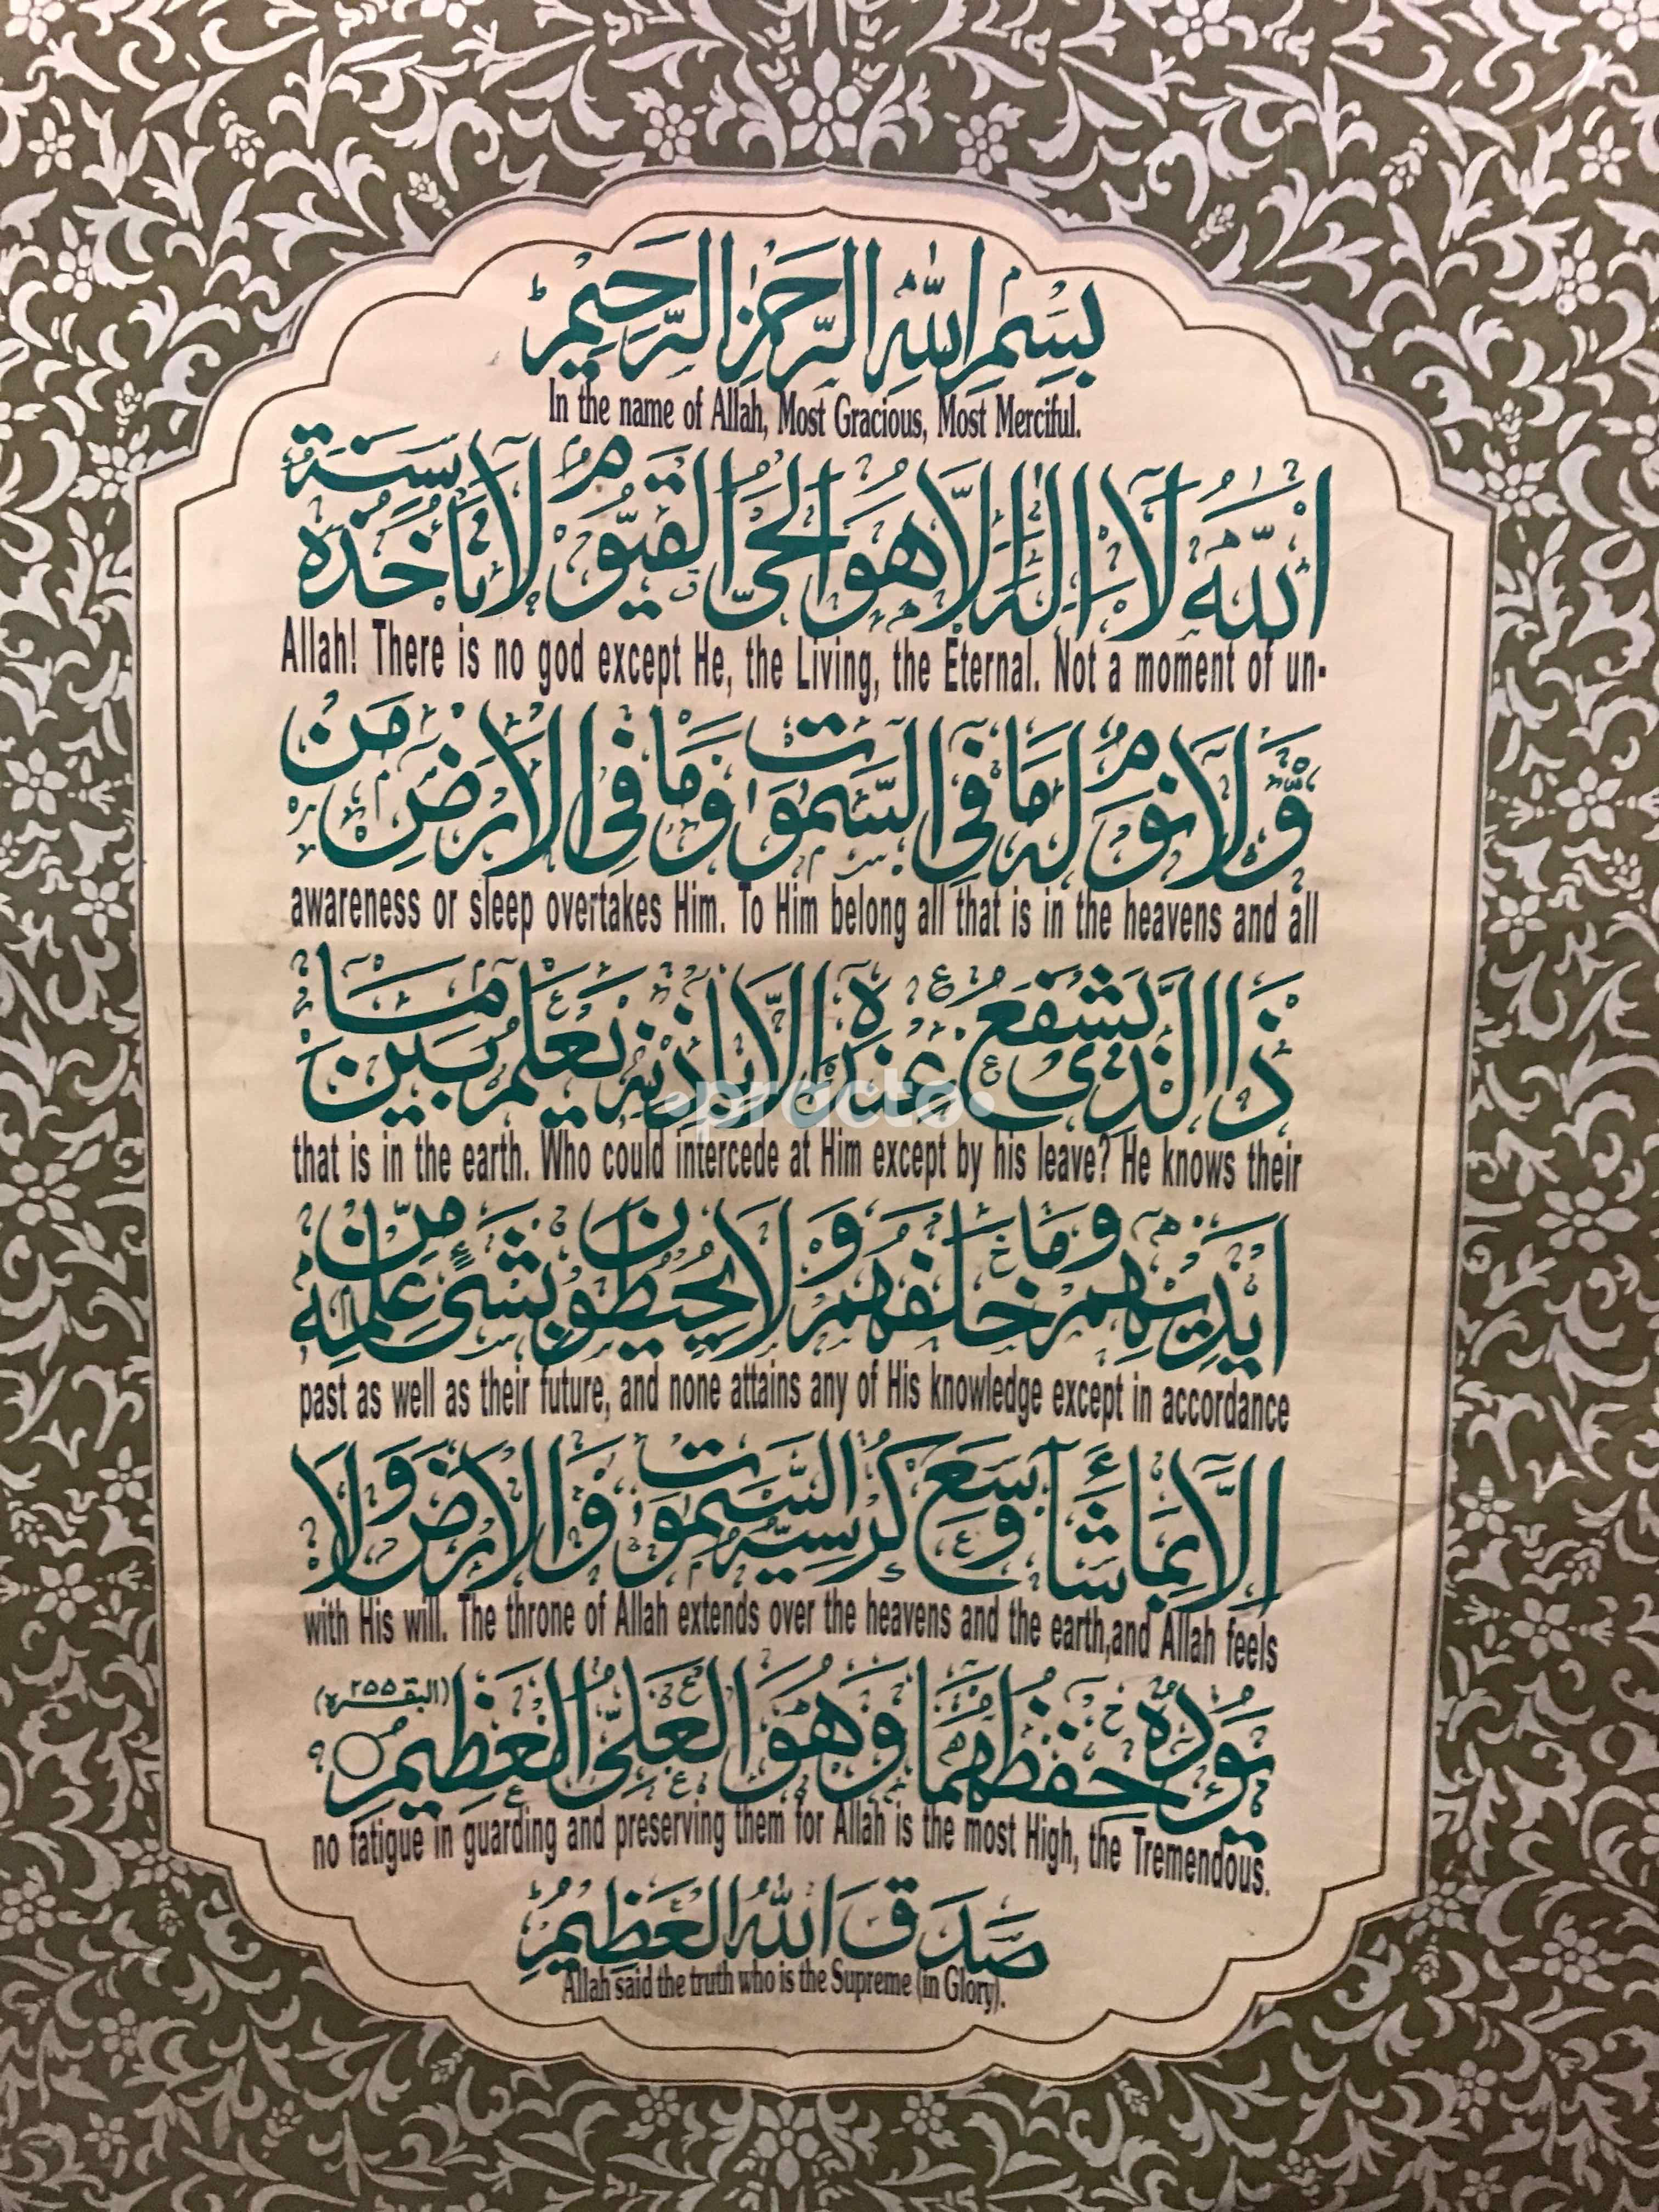 بِسْمِ اللهِ الرَّحْمٰنِ الرَّحِيْمِ ط
In the name of Allah, Most Gracious, Most Merciful.
اَللهُ لَآ اِلٰهَ اِلَّا هُوَ الْحَيُّ الْقَيُّوْمُ لَا تَأْخُذُهٗ سِنَةٌ
Allah! There is no god except He, the Living, the Eternal. Not a moment of un-
وَّلَا نَوْمٌ لَهٗ مَا فِي السَّمٰوٰتِ وَمَا فِي الْاَرْضِ مَنْ
awareness or sleep overtakes Him. To Him belong all that is in the heavens and all
ذَا الَّذِيْ يَشْفَعُ عِنْدَهٗ اِلَّا بِاِذْنِهٖ يَعْلَمُ مَا بَيْنَ
practo
that is in the earth. Who could intercede at Him except by his leave? He knows their
اَيْدِيْهِمْ وَمَا خَلْفَهُمْ وَلَا يُحِيْطُوْنَ بِشَيْءٍ مِّنْ عِلْمِهٖ
past as well as their future, and none attains any of His knowledge except in accordance
اِلَّا بِمَا شَآءَ وَسِعَ كُرْسِيُّهُ السَّمٰوٰتِ وَالْاَرْضَ وَلَا
with His will. The throne of Allah extends over the heavens and the earth,and Allah feels
يَئُوْدُهٗ حِفْظُهُمَا وَهُوَ الْعَلِيُّ الْعَظِيْمُ (البقرة ٢٥٥)
no fatigue in guarding and preserving them for Allah is the most High, the Tremendous.
صَدَقَ اللهُ الْعَظِيْمُ ط
Allah said the truth who is the Supreme (in Glory).